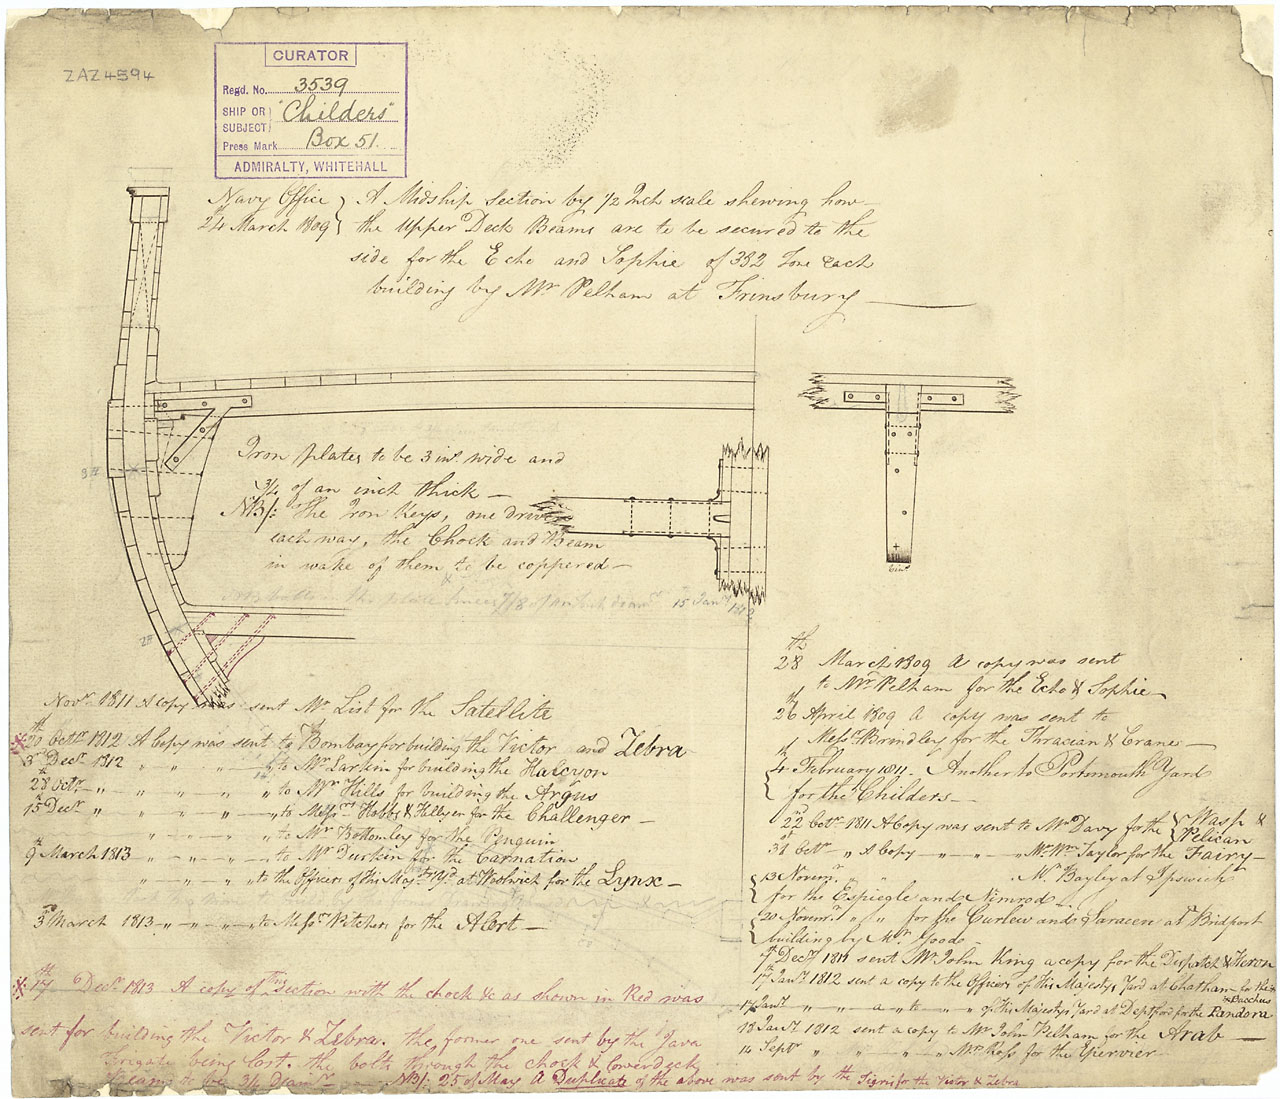 ZAZ4594
CURATOR
Regd. No. 3539
SHIP OR SUBJECT "Childers"
Press Mark Box 51.
ADMIRALTY, WHITEHALL
Navy Office
24 March 1809
A Midship Section by 1/2 Inch scale shewing how
the Upper Deck Beams are to be secured to the
side for the Echo and Sophie of 382 Tons each
building by Mr Pelham at Frinsbury
Iron plates to be 3 ins. wide and
3/4 of an inch thick —
NB/: The Iron Keys, one driven
each way, the Chock and Beam
in wake of them to be coppered —
15 Jany 1812
6 ins
28th March 1809 A copy was sent
to Mr Pelham for the Echo & Sophie —
26th April 1809 A copy was sent to
Messrs Brindley for the Thracian & Crane —
4th February 1811. Another to Portsmouth Yard
for the Childers —
22nd Octr 1811 A Copy was sent to Mr Davy for the Wasp & Pelican
31st Octr " A Copy — " — " — Mr Wm Taylor for the Fairy —
13 Novemr. " " Mr Bayley at Ipswich
for the Espiegle and Nimrod —
20 Novemr. " " for the Curlew and Saracen at Bridport
building by Mr Goode
7th Decr 1811 sent Mr John King a copy for the Dispatch & Heron
7th Jany 1812 sent a copy to the Officers of His Majestys Yard at Chatham for the
Bacchus
17 Jany " — " — a — to — " of His Majestys Yard at Deptford for the Pandora
18 Jany 1812 sent a copy to Mr John Pelham for the Arab —
14 Septr " " " " Mr Ross for the Epervier
Novr 1811 A copy was sent Mr List for the Satellite
20th Octr 1812 A Copy was sent to Bombay for building the Victor and Zebra
3rd Decr 1812 " " — " — " to Mr Larkin for building the Halcyon
28th Octr — " — " — " — " to Mr Hills for building the Argus
15 Decr " " — " — " — " to Messrs Hobbs & Hellyer for the Challenger —
" — " — " — " to Mr Bottomley for the Penguin
9th March 1813 " — " — " — " to Mr Durkin for the Carnation
" — " — " — " to the Officers of His Majs Yd at Woolwich for the Lynx —
3d March 1813 — " — " — " — " to Messrs Pitcher for the Alert —
17th Decr 1813 A copy of this Section with the chock &c as shown in Red was
sent for building the Victor & Zebra. the former one sent by the Java
Frigate being lost. the bolts through the chock & lowerdeck
Beams to be 3/4 Diamr — NB/: 25 of May A Duplicate of the above was sent by the Tigris for the Victor & Zebra